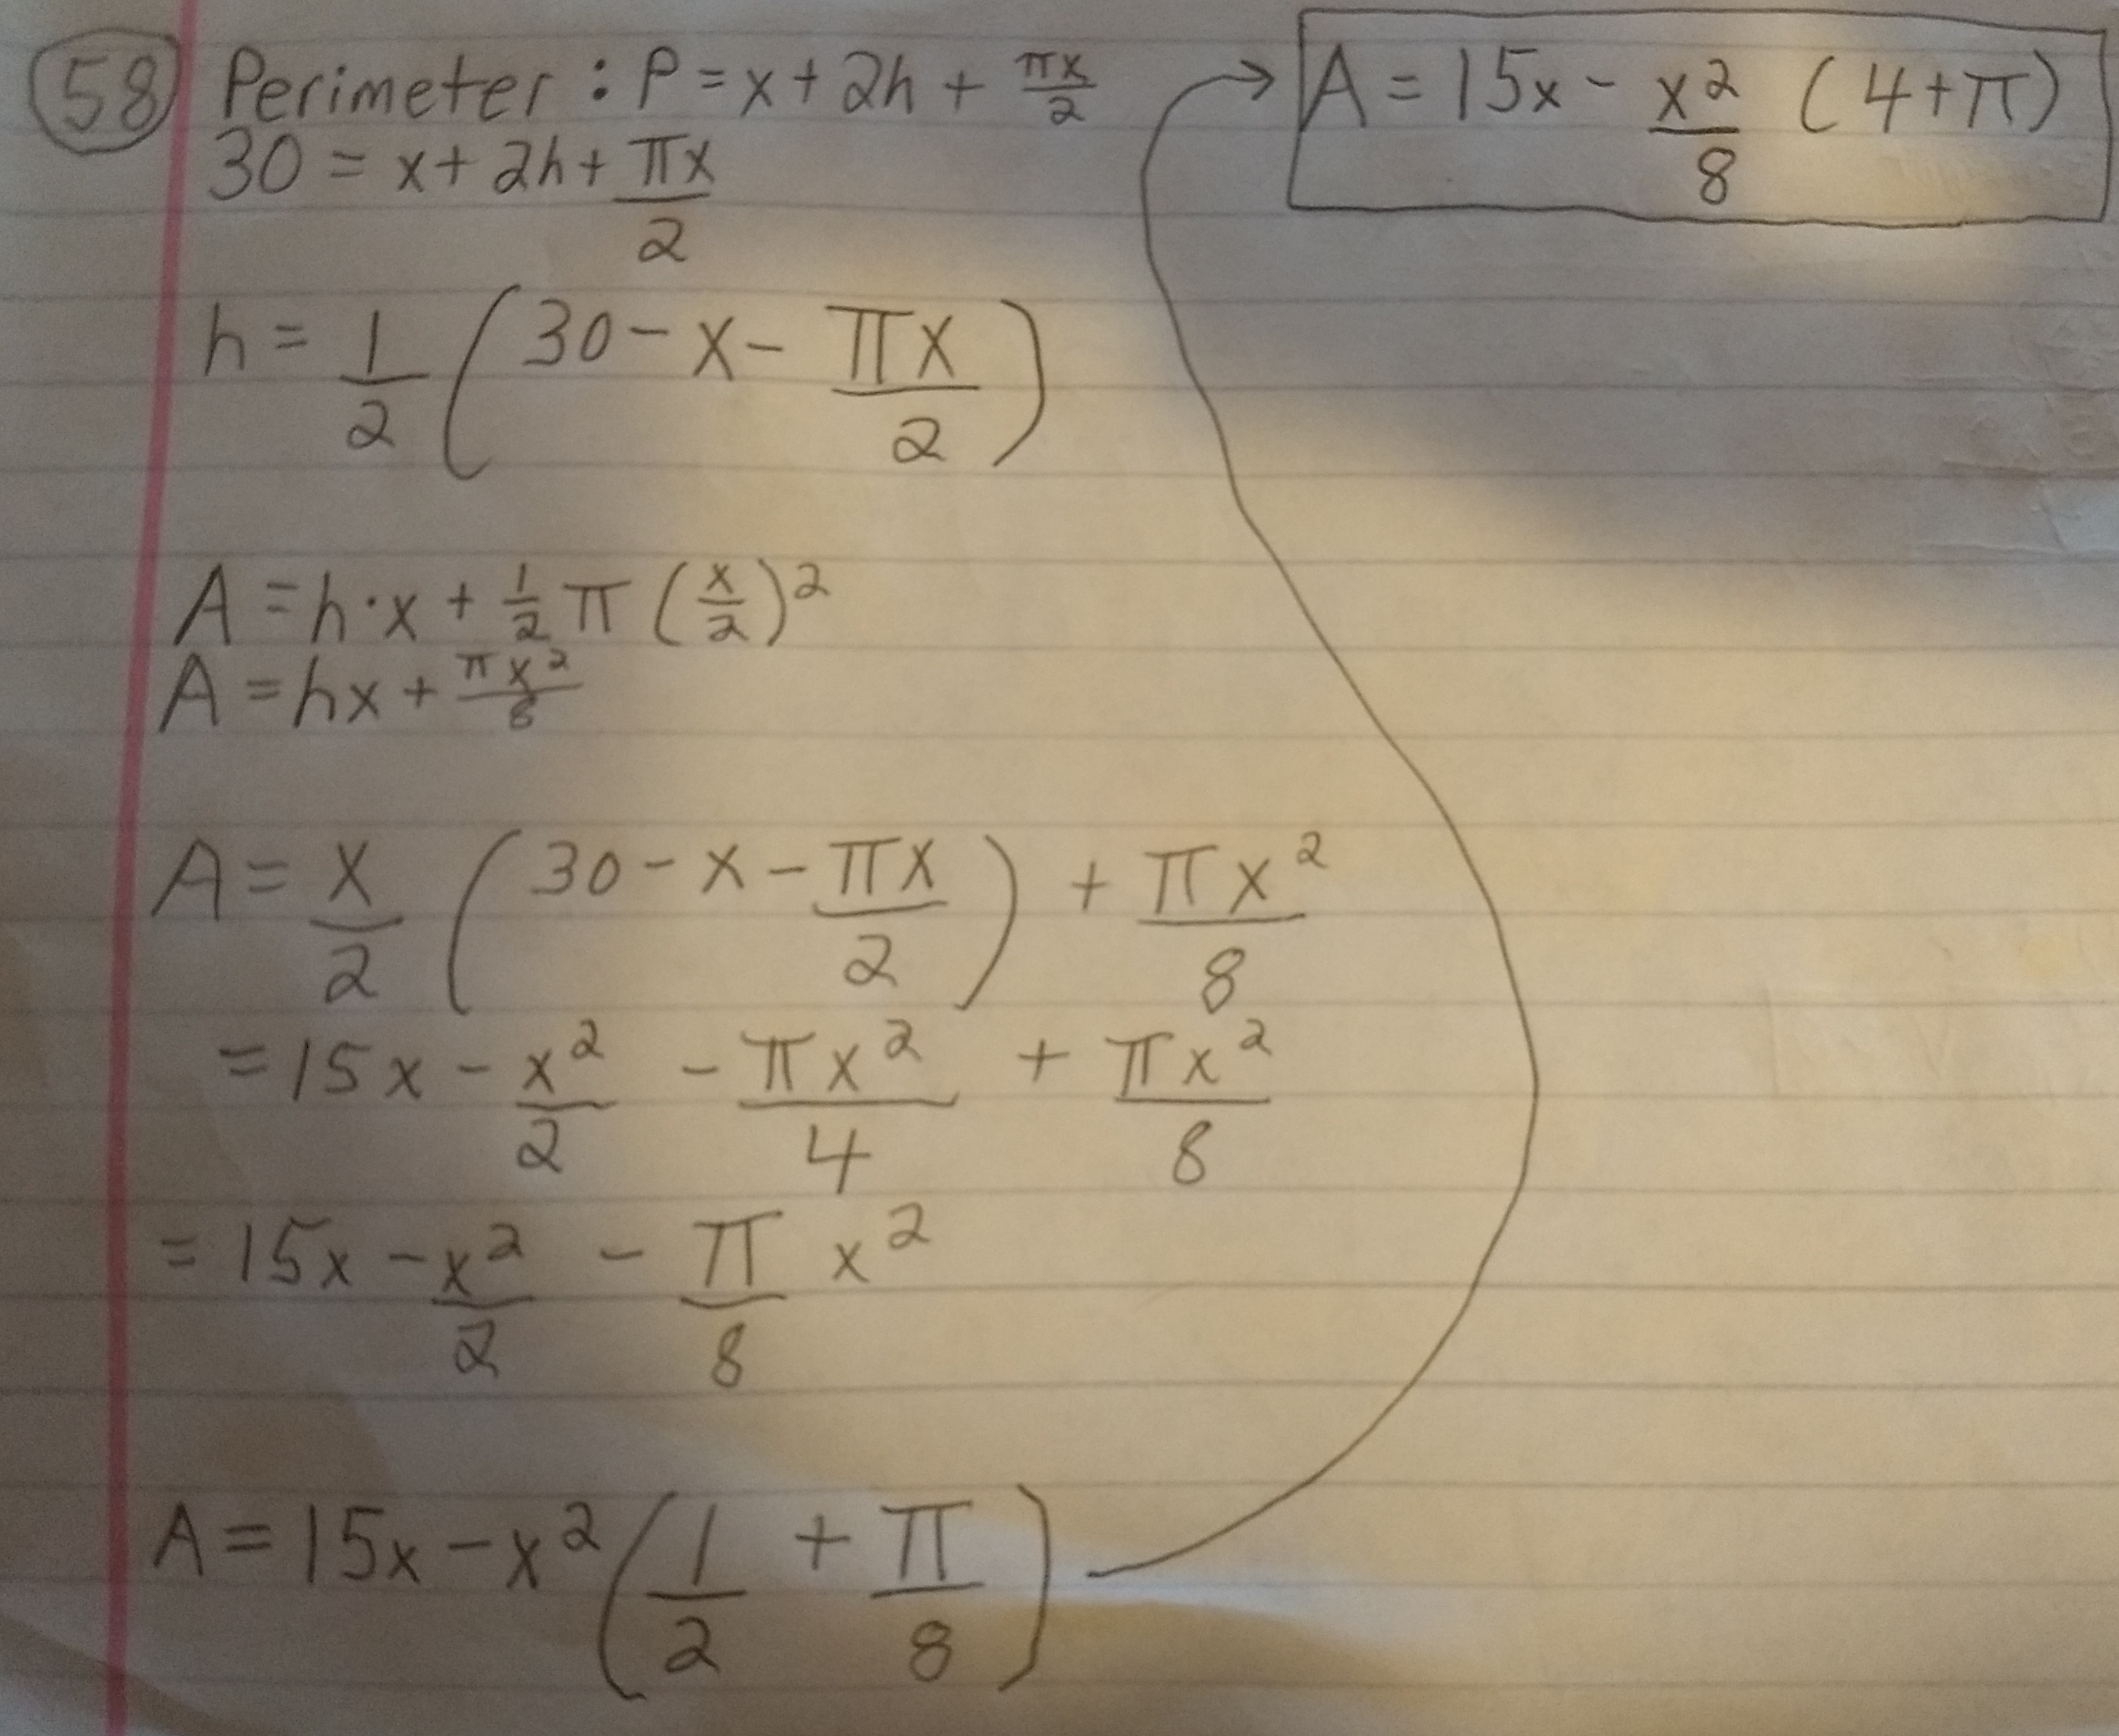 58 Perimeter: P = x + 2h + πx/2
30 = x + 2h + πx/2
h = 1/2 (30 - x - πx/2)
A = h·x + 1/2 π (x/2)²
A = hx + πx²/8
A = x/2 (30 - x - πx/2) + πx²/8
= 15x - x²/2 - πx²/4 + πx²/8
= 15x - x²/2 - π/8 x²
A = 15x - x² (1/2 + π/8)
→ A = 15x - x²/8 (4 + π)